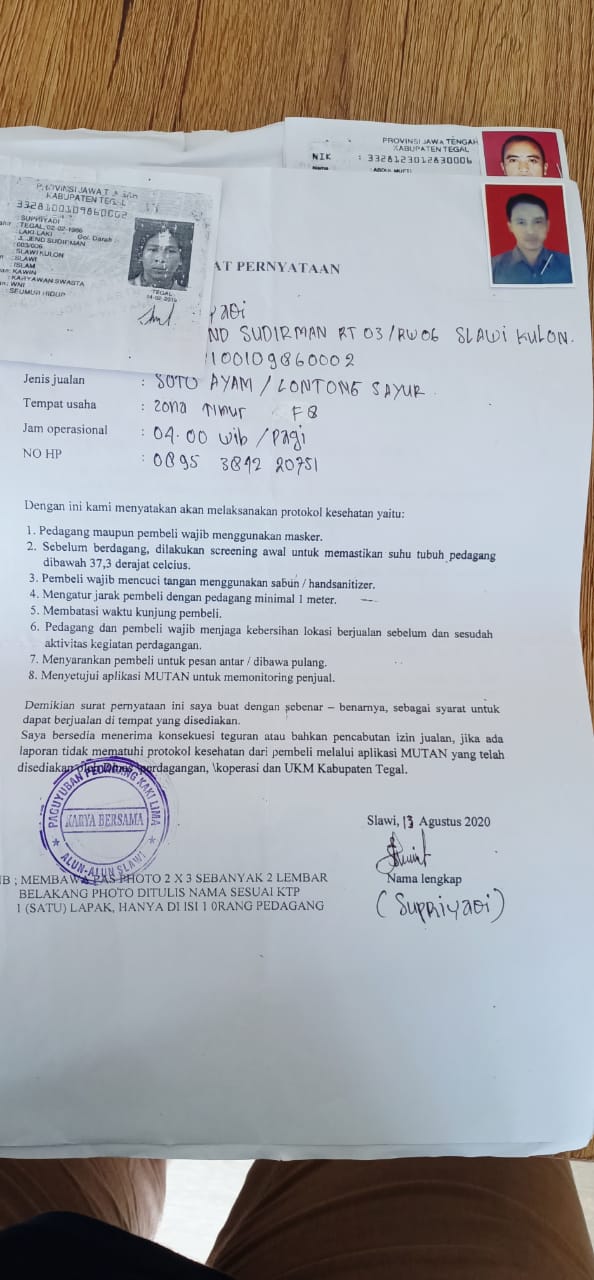 PROVINSI JAWA TENGAH
KABUPATEN TEGAL
NIK : 3328123012830006
PROVINSI JAWA
KABUPATEN TEGAL
3328100109860002
SUPRIYADI
TEGAL, 02-02-1986
LAKI-LAKI Gol. Darah :
JL. JEND SUDIRMAN
003/006
SLAWI KULON
SLAWI
ISLAM
KAWIN
KARYAWAN SWASTA
WNI
SEUMUR HIDUP
TEGAL
AT PERNYATAAN
yadi
ND SUDIRMAN RT 03/RW 06 SLAWI KULON.
100109860002
Jenis jualan : SOTO AYAM / LONTONG SAYUR
Tempat usaha : Zona Timur F8
Jam operasional : 04.00 wib / pagi
NO HP : 0895 3842 20751
Dengan ini kami menyatakan akan melaksanakan protokol kesehatan yaitu:
1. Pedagang maupun pembeli wajib menggunakan masker.
2. Sebelum berdagang, dilakukan screening awal untuk memastikan suhu tubuh pedagang
dibawah 37,3 derajat celcius.
3. Pembeli wajib mencuci tangan menggunakan sabun / handsanitizer.
4. Mengatur jarak pembeli dengan pedagang minimal 1 meter.
5. Membatasi waktu kunjung pembeli.
6. Pedagang dan pembeli wajib menjaga kebersihan lokasi berjualan sebelum dan sesudah
aktivitas kegiatan perdagangan.
7. Menyarankan pembeli untuk pesan antar / dibawa pulang.
8. Menyetujui aplikasi MUTAN untuk memonitoring penjual.
Demikian surat pernyataan ini saya buat dengan sebenar – benarnya, sebagai syarat untuk
dapat berjualan di tempat yang disediakan.
Saya bersedia menerima konsekuesi teguran atau bahkan pencabutan izin jualan, jika ada
laporan tidak mematuhi protokol kesehatan dari pembeli melalui aplikasi MUTAN yang telah
disediakan oleh Dinas perdagangan, \koperasi dan UKM Kabupaten Tegal.
PAGUYUBAN PEDAGANG KAKI LIMA
KARYA BERSAMA
ALUN-ALUN SLAWI
Slawi, 13 Agustus 2020
Nama lengkap
(Supriyadi)
NB ; MEMBAWA PAS PHOTO 2 X 3 SEBANYAK 2 LEMBAR
BELAKANG PHOTO DITULIS NAMA SESUAI KTP
1 (SATU) LAPAK, HANYA DI ISI 1 0RANG PEDAGANG